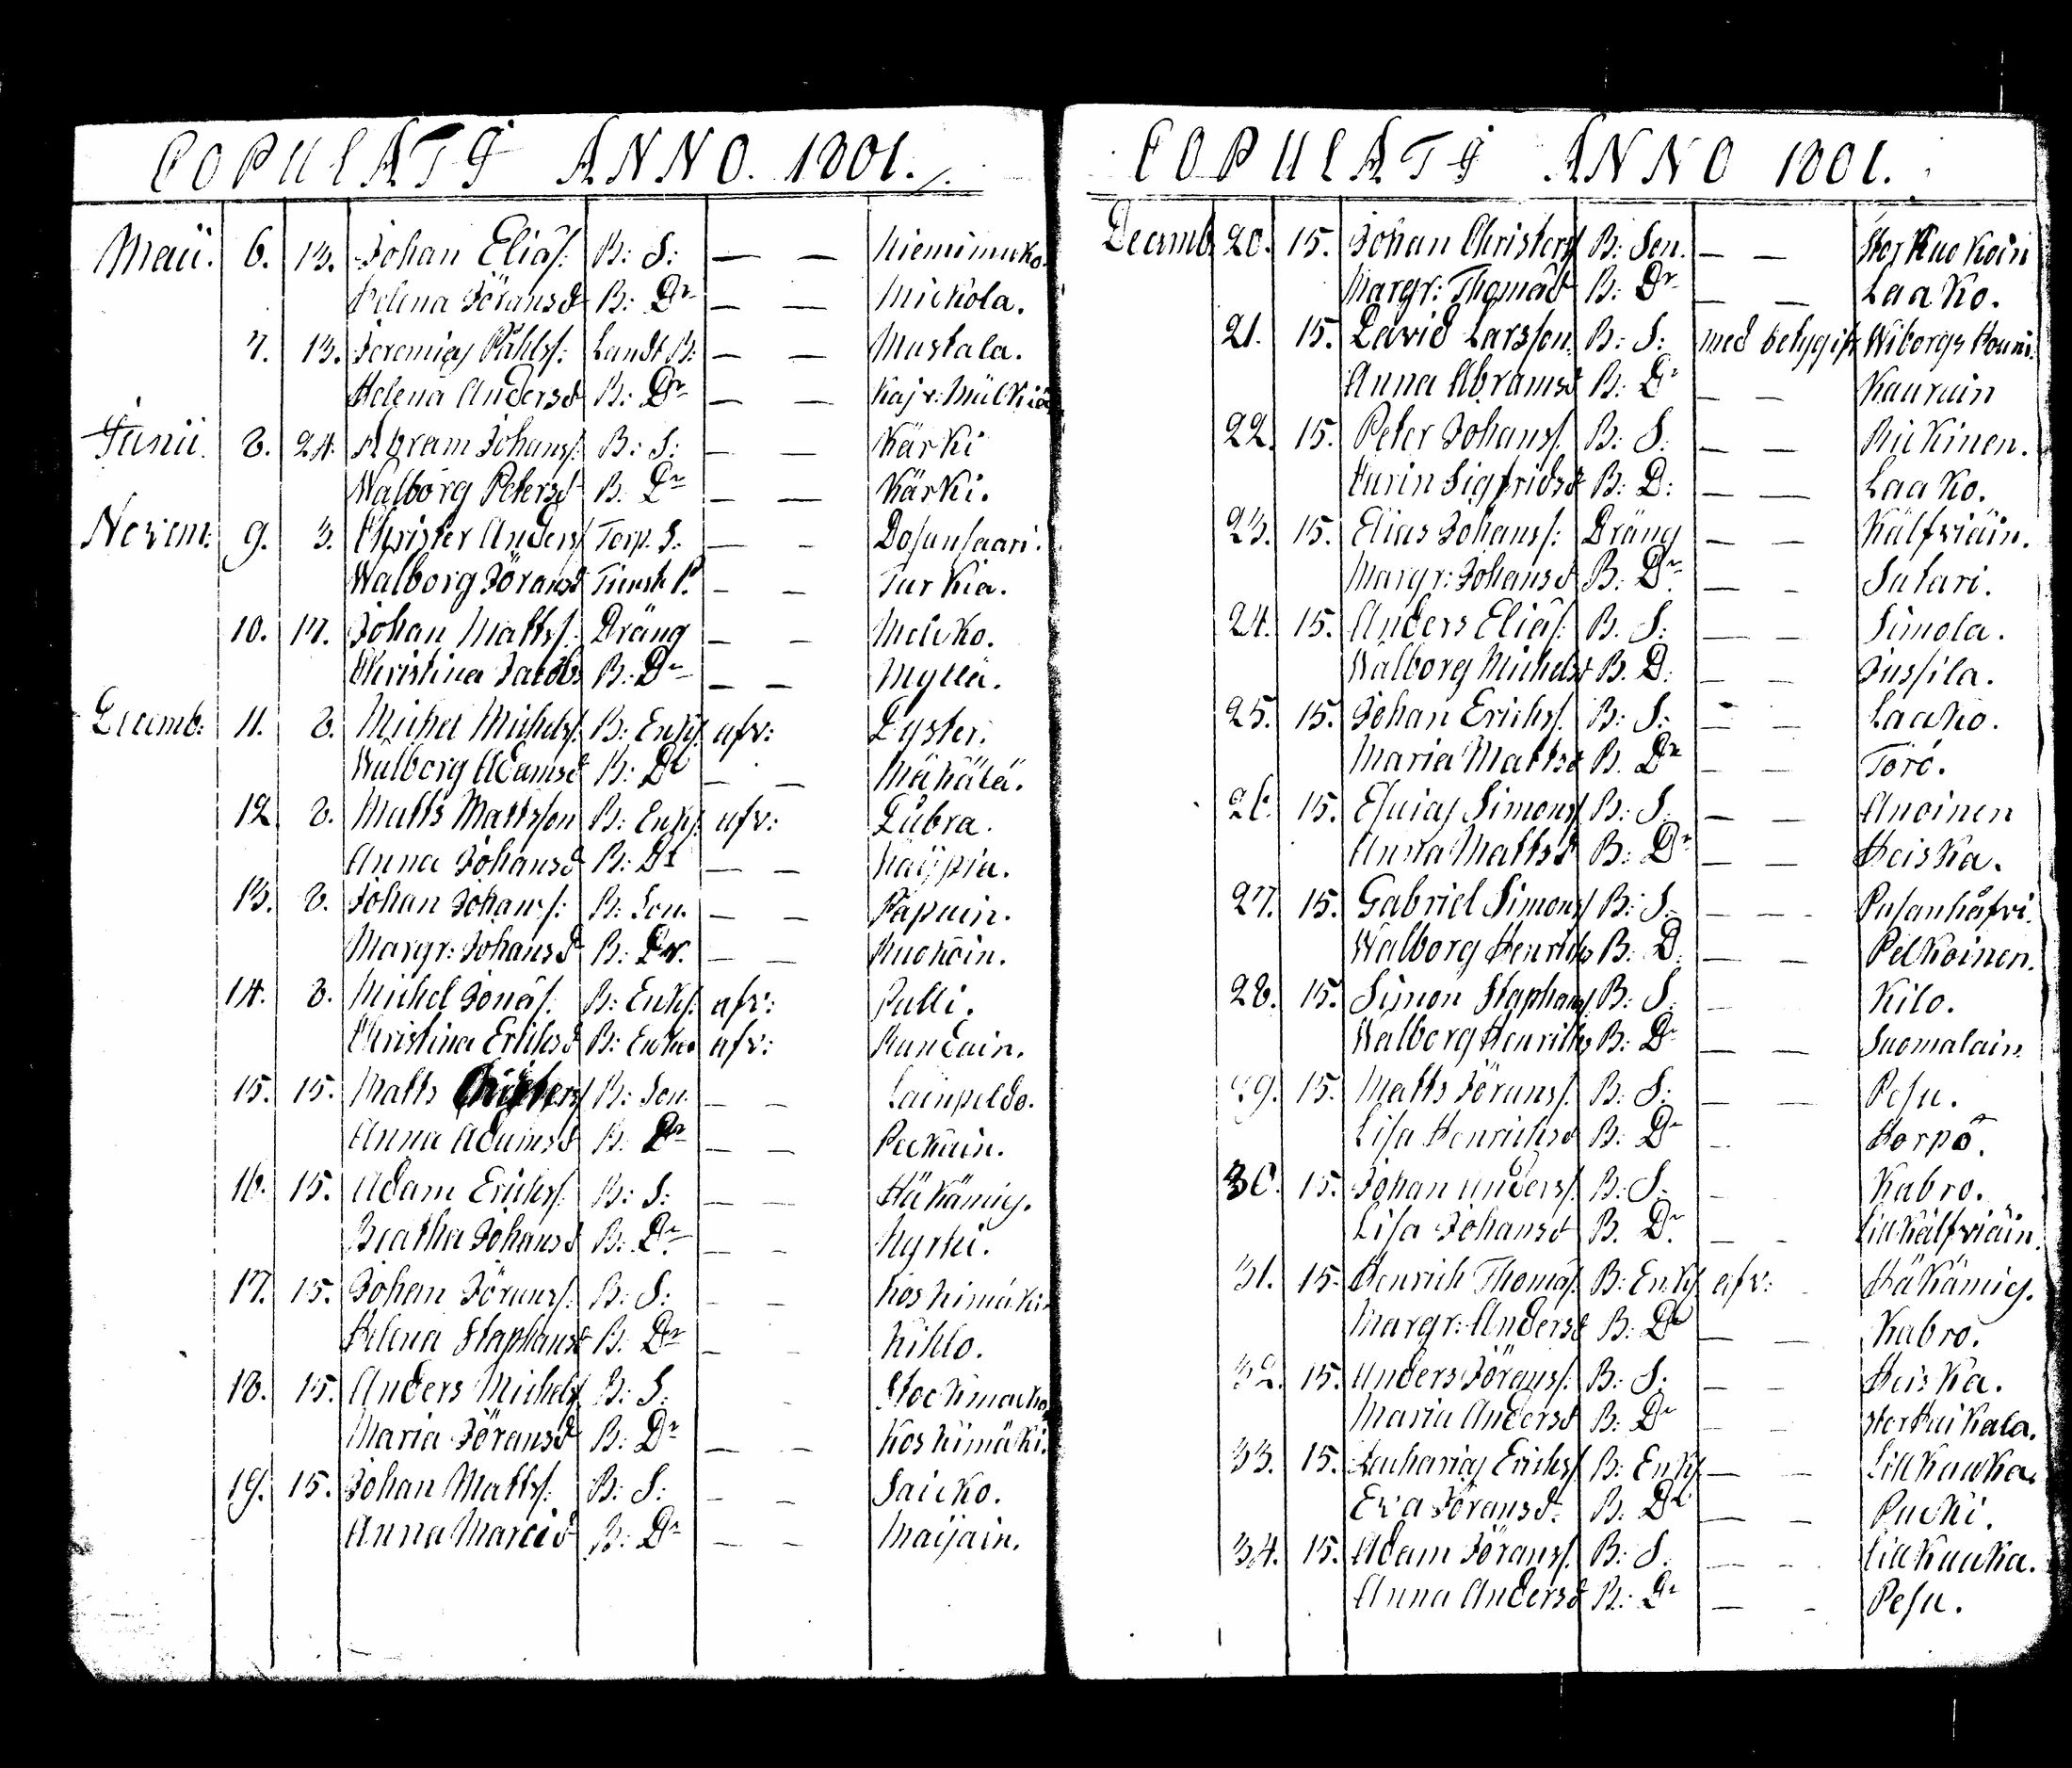 COPULATI ANNO. 1801.
Maii. 6. 13. Johan Eliæs: B: S: — — Niemimicko.
Helena Jöransd B: Dr — — Mickola.
7. 13. Jeremias Påhls: Landt B: — — Mustala.
Helena Andersd B: Dr — —
Junii. 8. 24. Abram Johans: B: S: — — Kärki
Walborg Petersd B. Dr — — Kärki.
Novem: 9. 3. Christer Anders Torp. S: — - Dosunsaari.
Walborg Jöransd Tienste P. - - Turkia.
10. 17. Johan Matts: Dräng — - Melcko.
Christina Jacobs B: Dr — — Myllä.
Decemb: 11. 8. Michel Michels: B: Enkl. afv: Lyster.
Walborg Adamsd B: Dr — — Mäkälä.
12. 8. Matts Mattsson B: Enkl. afv: Lubra.
Anna Johansd B: Dr — — Kaippia.
13. 8. Johan Johans: B: Son. — — Papuin.
Margr: Johansd B: Dr. — — Kuokoin.
14. 8. Michel Jonæs: B: Enkl. afv: Pulli.
Christina Erichsd B: Enka afv:
15. 15. Matts Christers B: Son. — — Lainpeldo.
Anna Adamsd B. Dr — — Peckuin.
16. 15. Adam Erichs: B: S: — — Häkämies.
Beatha Johansd B: Dr — - Kyrki.
17. 15. Johan Jörans: B: S: - — Koskimäki.
Helena Staphansd B: Dr — - Kihlo.
18. 15. Anders Michels B: S: -
Maria Jöransd B: Dr — — Koskimäki.
19. 15. Johan Matts: B: S: - — Saicko.
Anna Marcisd B: Dr — — Maijain.
COPULATI ANNO 1801.
Decemb. 20. 15. Johan Christers B: Son. — — Stor Kuokoin
Margr: Thomæd B: Dr — — Laako.
21. 15. David Larsson. B: S: med betygifr Wiborgs Kouni.
Anna Abramsd B: Dr — — Kauruin
22. 15. Peter Johans: B: S: — — Rickinen.
Karin Sigfridsd B: D: — — Laako.
23. 15. Elias Johans: Dräng — — Kälfviäin.
Margr: Johansd B: Dr — - Sutari.
24. 15. Anders Eliæs: B. S: — — Simola.
Walborg Michelsd B. D: — — Jussila.
25. 15. Johan Erichs: B: S: - — Laako.
Maria Mattsd B. Dr — — Törö.
26. 15. Esaias Simons B: S. — — Anoinen
Anna Mattsd B: Dr — — Heiska.
27. 15. Gabriel Simons B: S. — — Pusanhåfvi.
Walborg Henrichs B: D. — — Pelkoinen.
28. 15. Simon Staphans B: S. — Kilo.
Walborg Henrichs B: Dr — — Suomalain.
29. 15. Matts Jörans: B: S: — — Pesu.
Lisa Henrichsd B: Dr - Horpo.
30. 15. Johan Anders: B: S. - Kabro.
Lisa Johansd B. Dr. — - Lill Kälfviäin.
31. 15. Henrich Thomæs: B: Enkl afv: - Häkämies.
Margr: Andersd B: Dr — — Kabro.
32. 15. Anders Jörans: B: S. — — Heiska.
Maria Andersd B: Dr — — Stor Huikala.
33. 15. Zacharias Erichs B: Enkl — — Lill Kauka.
Eva Jöransd. B. Dr — — Pucki.
34. 15. Adam Jörans: B: S. — — Lill Kauka.
Anna Andersd B: Dr — - Pesu.